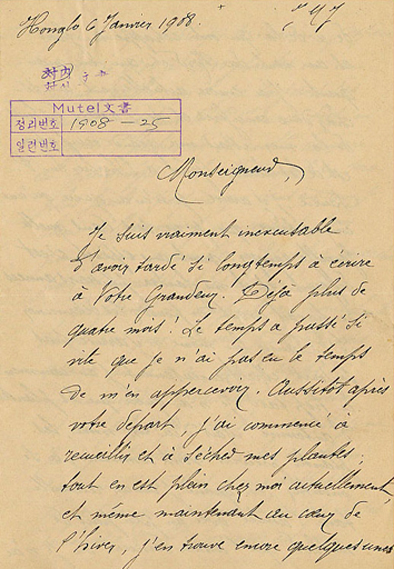 Honglo 6 Janvier 1908.
Mutel文書
정리번호 1908 — 25
일련번호
Monseigneur,
Je suis vraiment inexcusable
d'avoir tardé si longtemps à écrire
à Votre Grandeur. Déjà plus de
quatre mois! Le temps a passé si
vite que je n'ai pas eu le temps
de m'en appercevoir. Aussitôt après
votre départ, j'ai commencé à
recueillir et à sécher mes plantes;
tout en est plein chez moi actuellement,
et même maintenant au cœur de
l'hiver, j'en trouve encore quelques unes